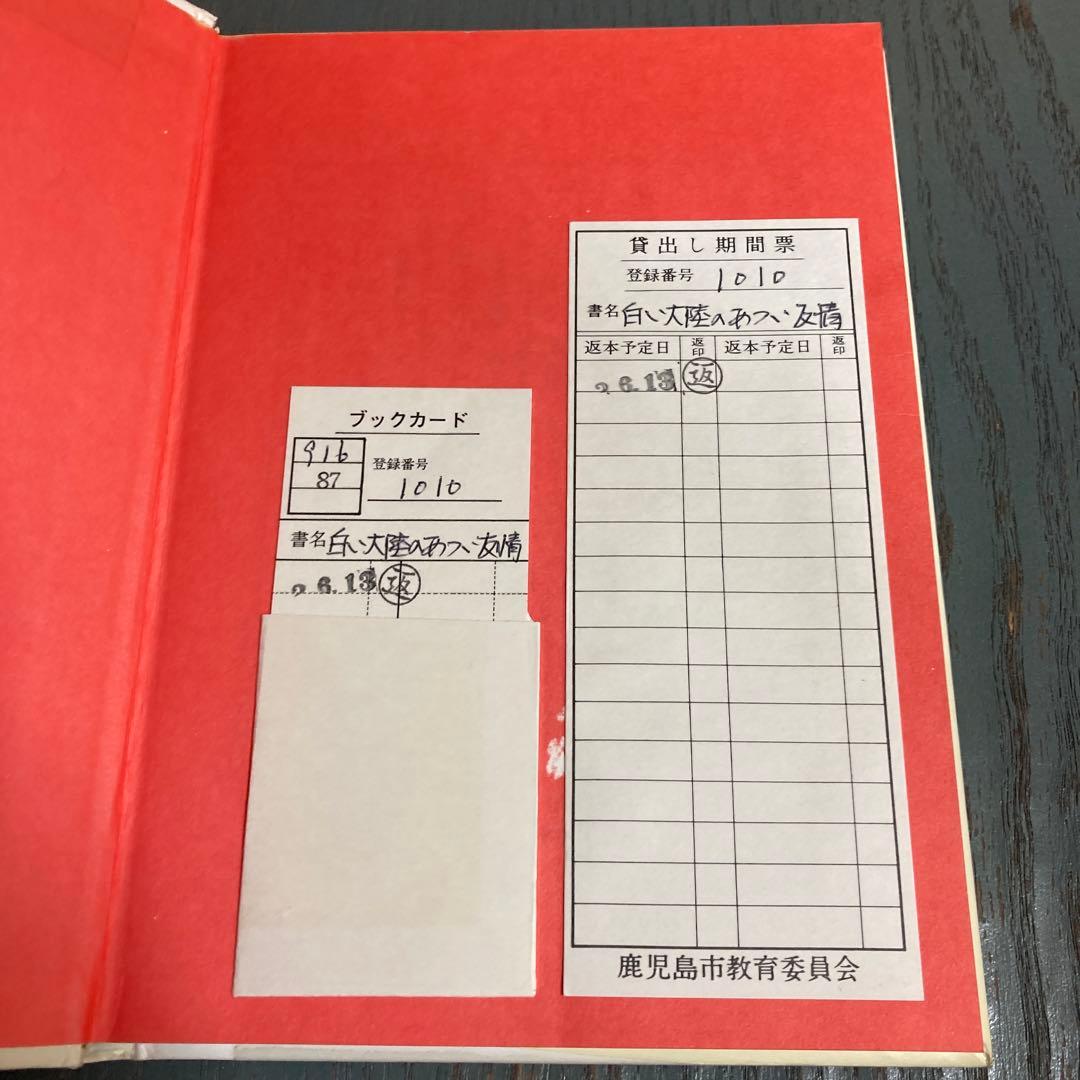 ブックカード
916
87
登録番号
1010
書名 白い大陸のあつい友情
2.6.13 坂
貸出し期間票
登録番号 1010
書名 白い大陸のあつい友情
返本予定日 返印 返本予定日 返印
2.6.13 坂
鹿児島市教育委員会